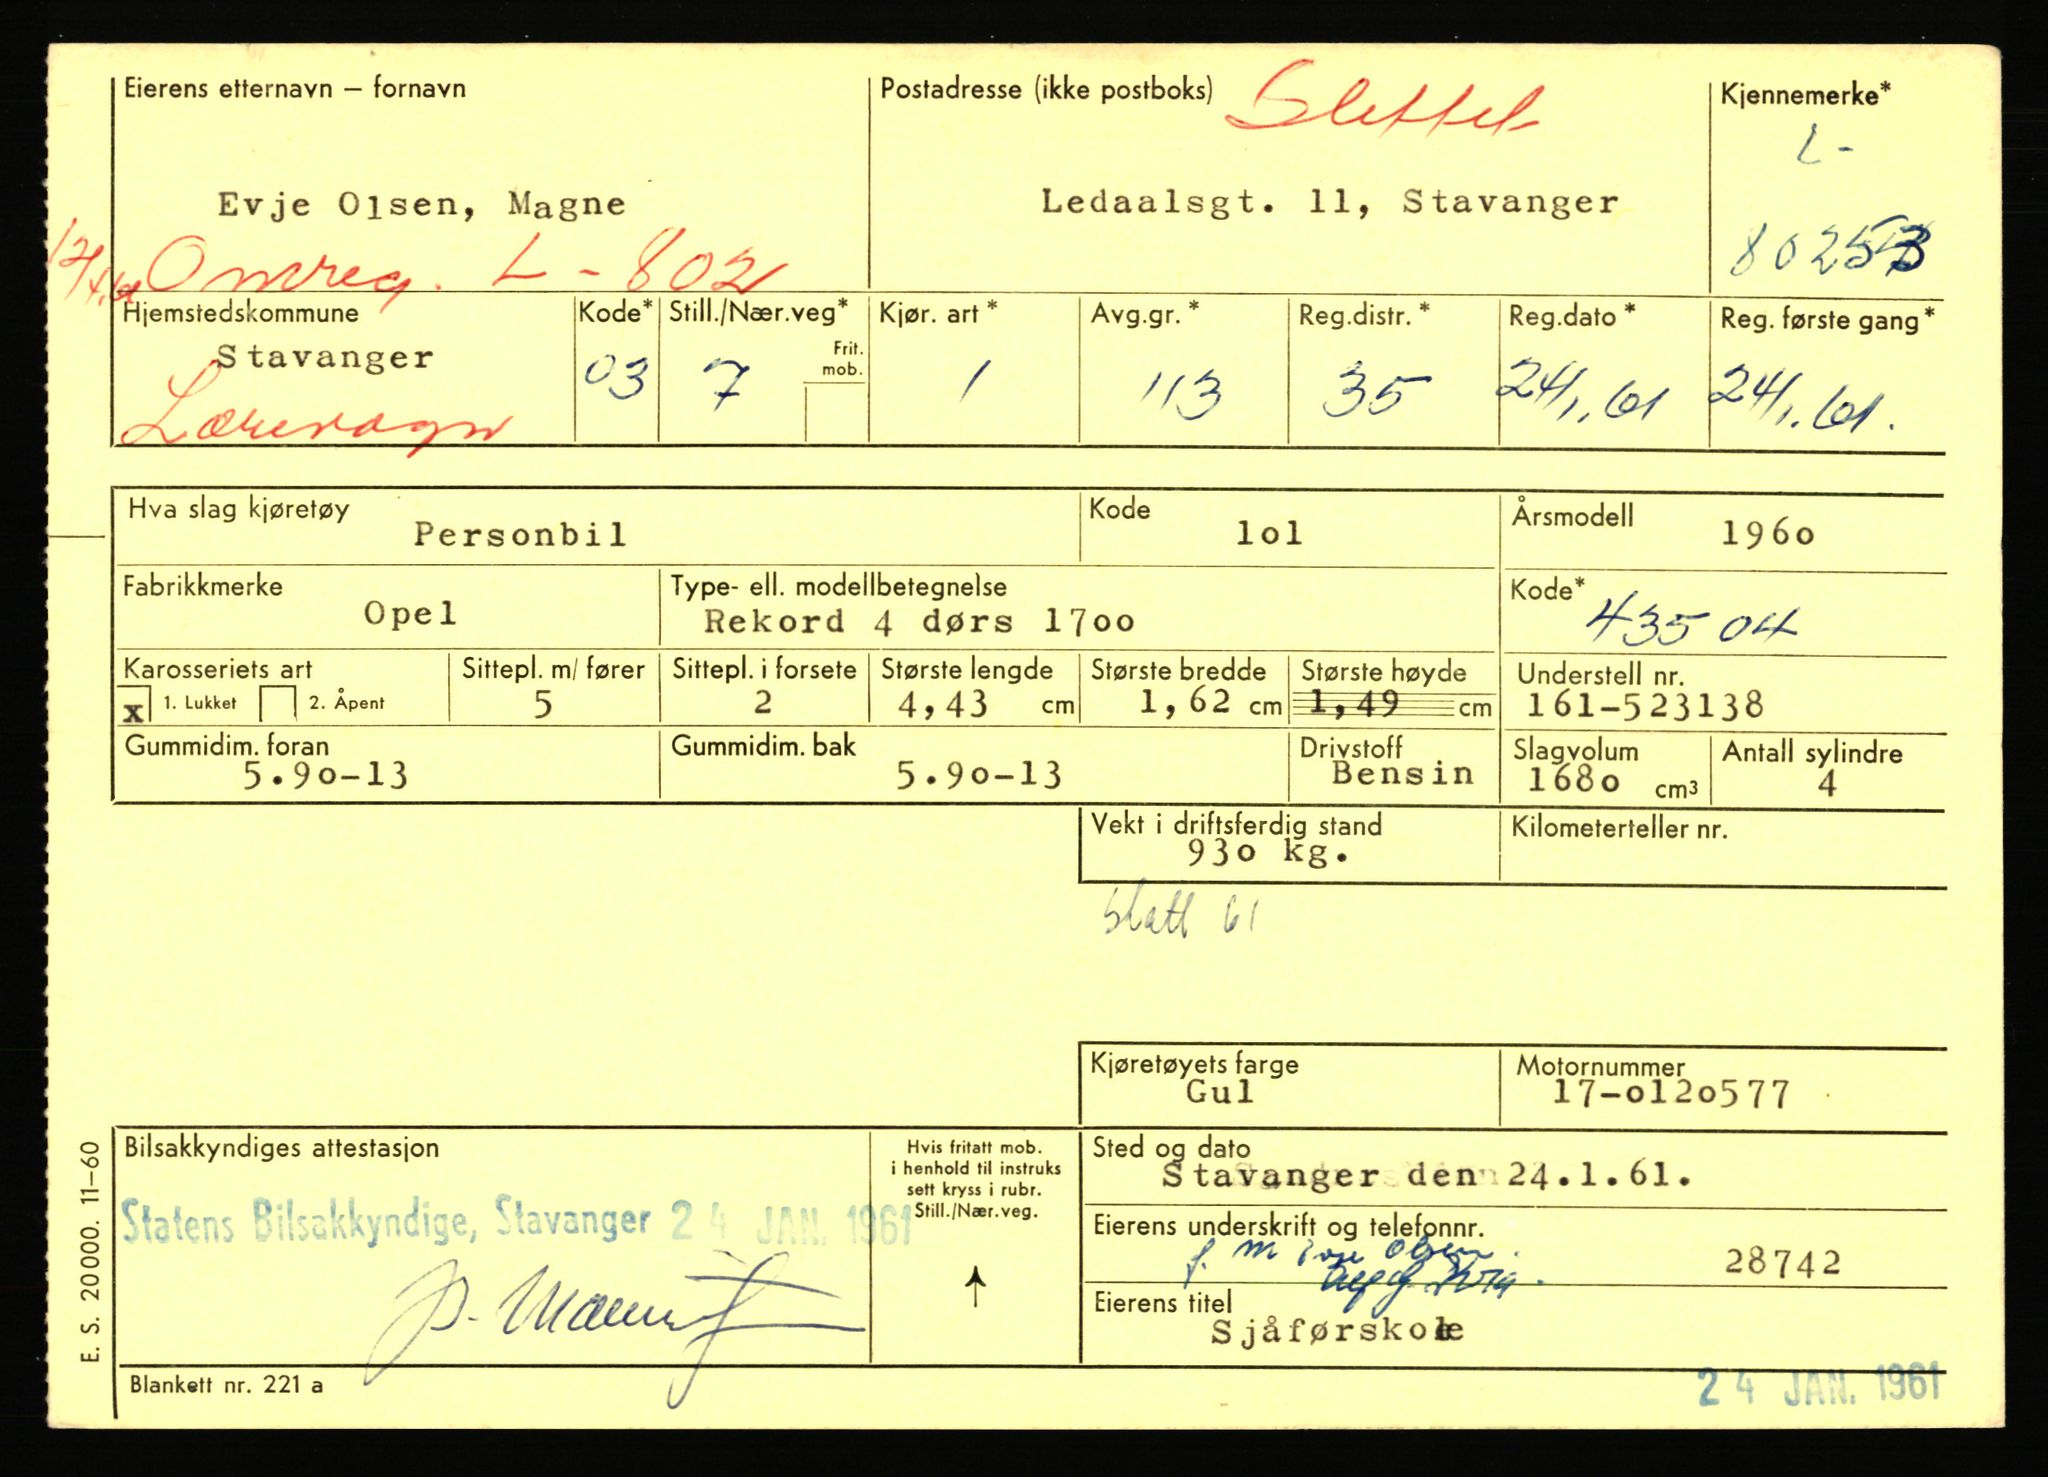 Eierens etternavn – fornavn
Postadresse (ikke postboks)
Slettet
Kjennemerke*
L-
Evje Olsen, Magne
Ledaalsgt. 11, Stavanger
Omreg. L - 802
Hjemstedskommune Kode* Still./Nær.veg* Kjør. art* Avg.gr.* Reg.distr.* Reg.dato* Reg. første gang*
Frit.
mob.
Stavanger 03 7 1 113 35 24/1.61 24/1.61.
Lærevogn
Hva slag kjøretøy Kode Årsmodell
Personbil 1o1 196o
Fabrikkmerke Type- ell. modellbetegnelse Kode*
Opel Rekord 4 dørs 17oo 435 04
Karosseriets art Sittepl. m/ fører Sittepl. i forsete Største lengde Største bredde Største høyde Understell nr.
x 1. Lukket 2. Åpent 5 2 4,43 cm 1,62 cm 1,49 cm 161-523138
Gummidim. foran Gummidim. bak Drivstoff Slagvolum Antall sylindre
5.9o-13 5.9o-13 Bensin 168o cm³ 4
Vekt i driftsferdig stand Kilometerteller nr.
93o kg.
61
Kjøretøyets farge Motornummer
Gul 17-o12o577
Bilsakkyndiges attestasjon
Hvis fritatt mob.
i henhold til instruks
sett kryss i rubr.
Still./Nær.veg.
Sted og dato
Stavanger den 24.1.61.
Statens Bilsakkyndige, Stavanger 24 JAN. 1961
Eierens underskrift og telefonnr.
28742
Eierens titel
Sjåførskole
E. S. 20000. 11–60
Blankett nr. 221 a
24 JAN. 1961